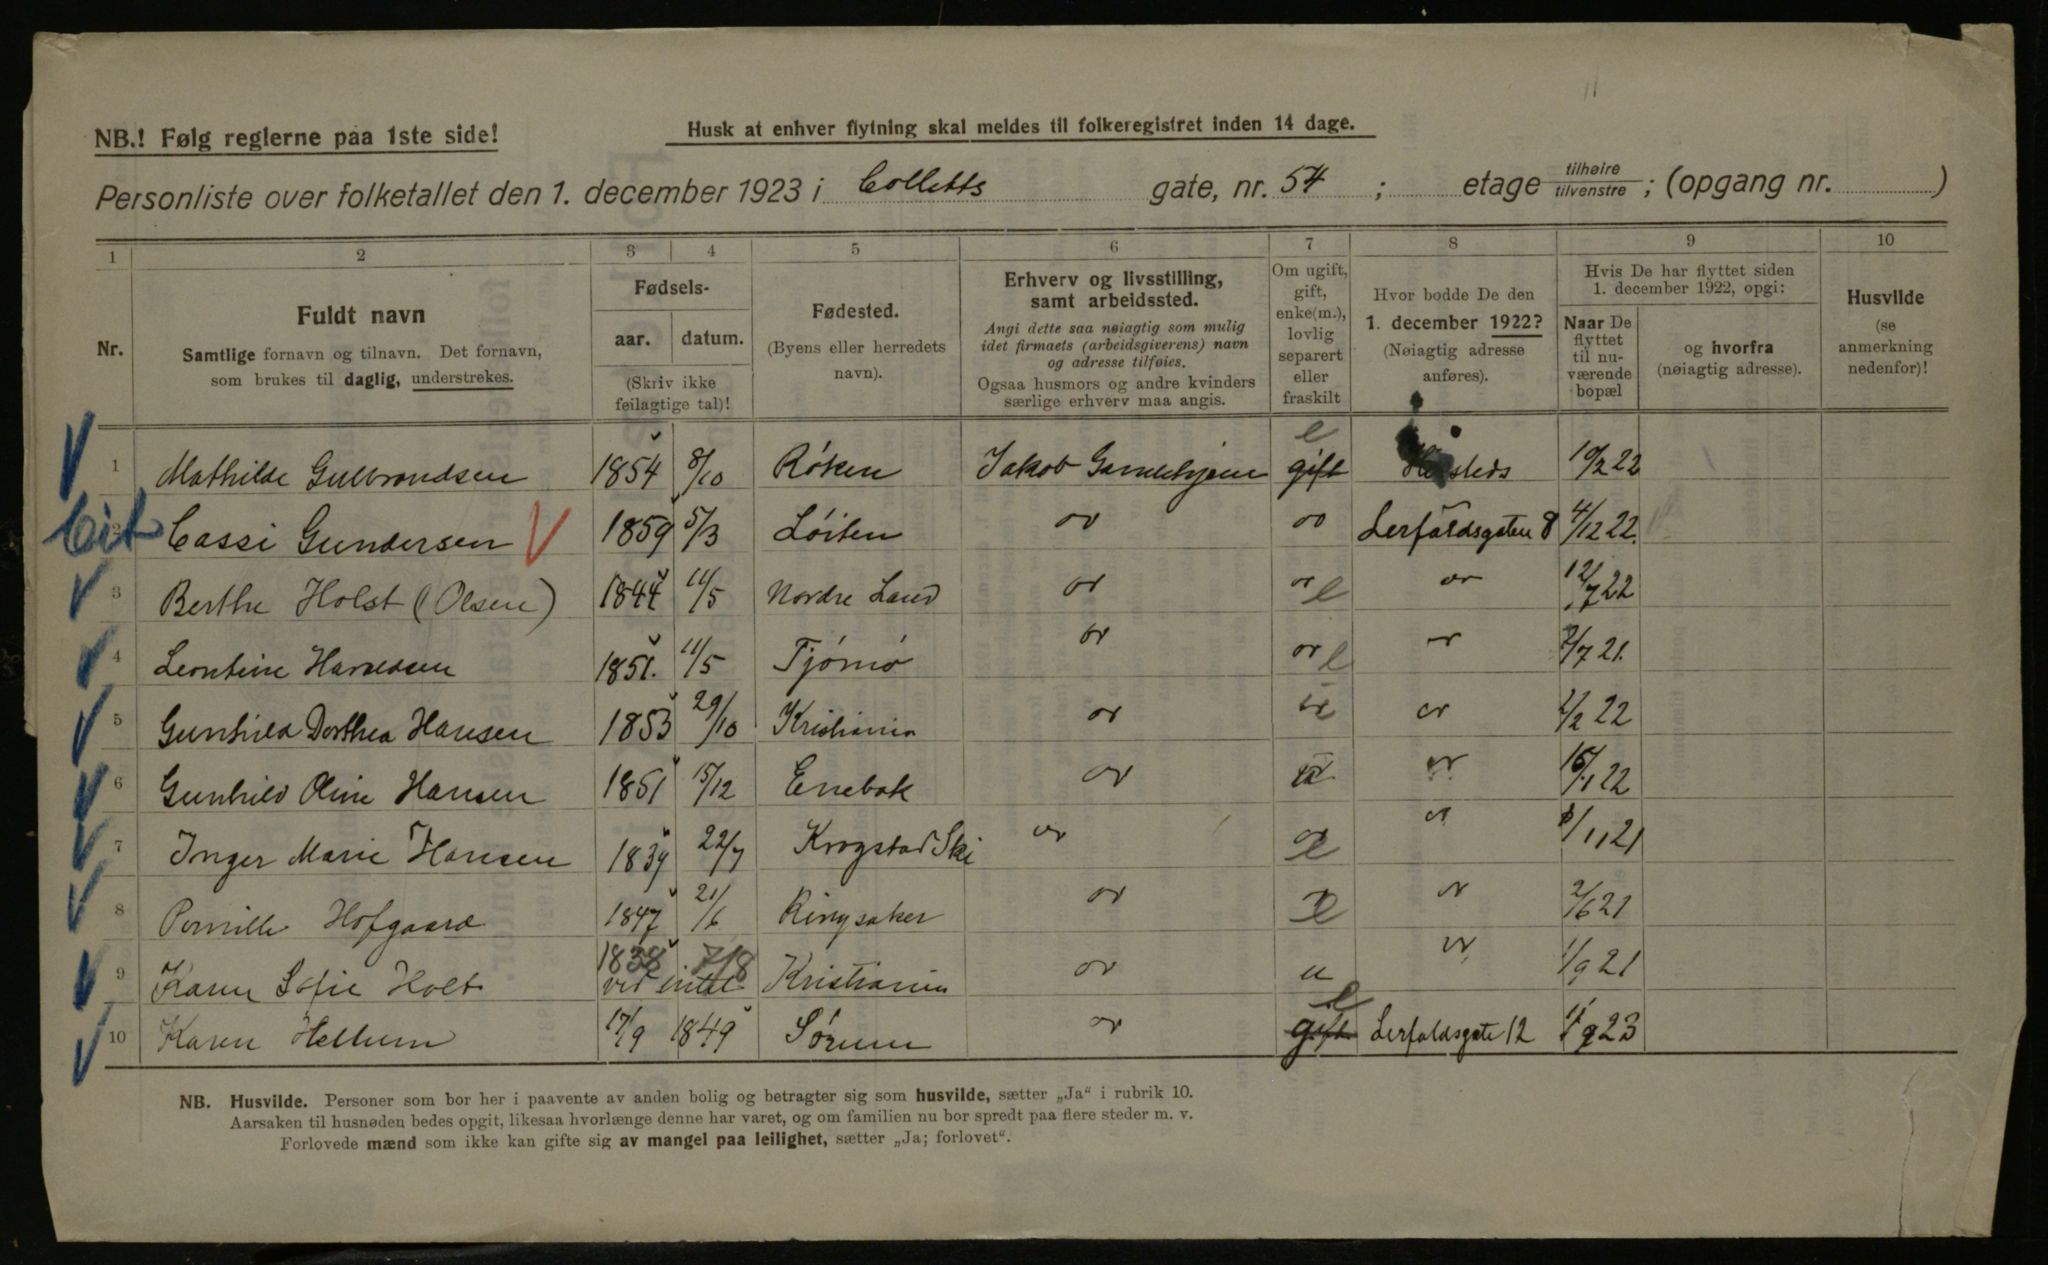 NB.! Følg reglerne paa 1ste side!
Husk at enhver flytning skal meldes til folkeregistret inden 14 dage.
Personliste over folketallet den 1. december 1923 i Colletts gate, nr. 54 ; etage tilhøire tilvenstre ; (opgang nr. )
1 2 3 4 5 6 7 8 9 10
Nr.
Fuldt navn
Samtlige fornavn og tilnavn. Det fornavn,
som brukes til daglig, understrekes.
Fødsels-
aar. datum.
(Skriv ikke
feilagtige tal)!
Fødested.
(Byens eller herredets
navn).
Erhverv og livsstilling,
samt arbeidssted.
Angi dette saa nøiagtig som mulig
idet firmaets (arbeidsgiverens) navn
og adresse tilføies.
Ogsaa husmors og andre kvinders
særlige erhverv maa angis.
Om ugift,
gift,
enke(m.),
lovlig
separert
eller
fraskilt
Hvor bodde De den
1. december 1922?
(Nøiagtig adresse
anføres).
Hvis De har flyttet siden
1. december 1922, opgi:
Naar De
flyttet
til nu-
værende
bopæl
og hvorfra
(nøiagtig adresse).
Husvilde
(se
anmerkning
nedenfor)!
1 Mathilde Gulbrandsen 1854 8/10 Røken Jakob gift e 10/2 22
2 Cassi Gundersen 1859 5/3 Løiten Lerfaldsgaten 8 4/12 22.
3 Berthe Holst (Olsen) 1844 11/5 Nordre Land e 12/7 22
4 Leontine Haraldsen 1851. 11/5 Tjømø e 2/7 21.
5 Gunhild Dorthea Hansen 1853 29/10 Kristiania e 1/2 22
6 Gunhild Oline Hansen 1851 15/12 Enebak 15/1 22
7 Inger Marie Hansen 1839 22/7 Krogstad Ski e 8/11 21
8 Pernille Hofgaard 1847 21/6 Ringsaker e 2/6 21
9 Karen Sofie Holt 1838 7/8 vet intet Kristiania u 1/9 21
10 Karen Hellum 17/9 1849 Sørum gift e Lerfaldsgate 12 1/9 23
NB. Husvilde. Personer som bor her i paavente av anden bolig og betragter sig som husvilde, sætter „Ja“ i rubrik 10.
Aarsaken til husnøden bedes opgit, likesaa hvorlænge denne har varet, og om familien nu bor spredt paa flere steder m. v.
Forlovede mænd som ikke kan gifte sig av mangel paa leilighet, sætter „Ja; forlovet“.